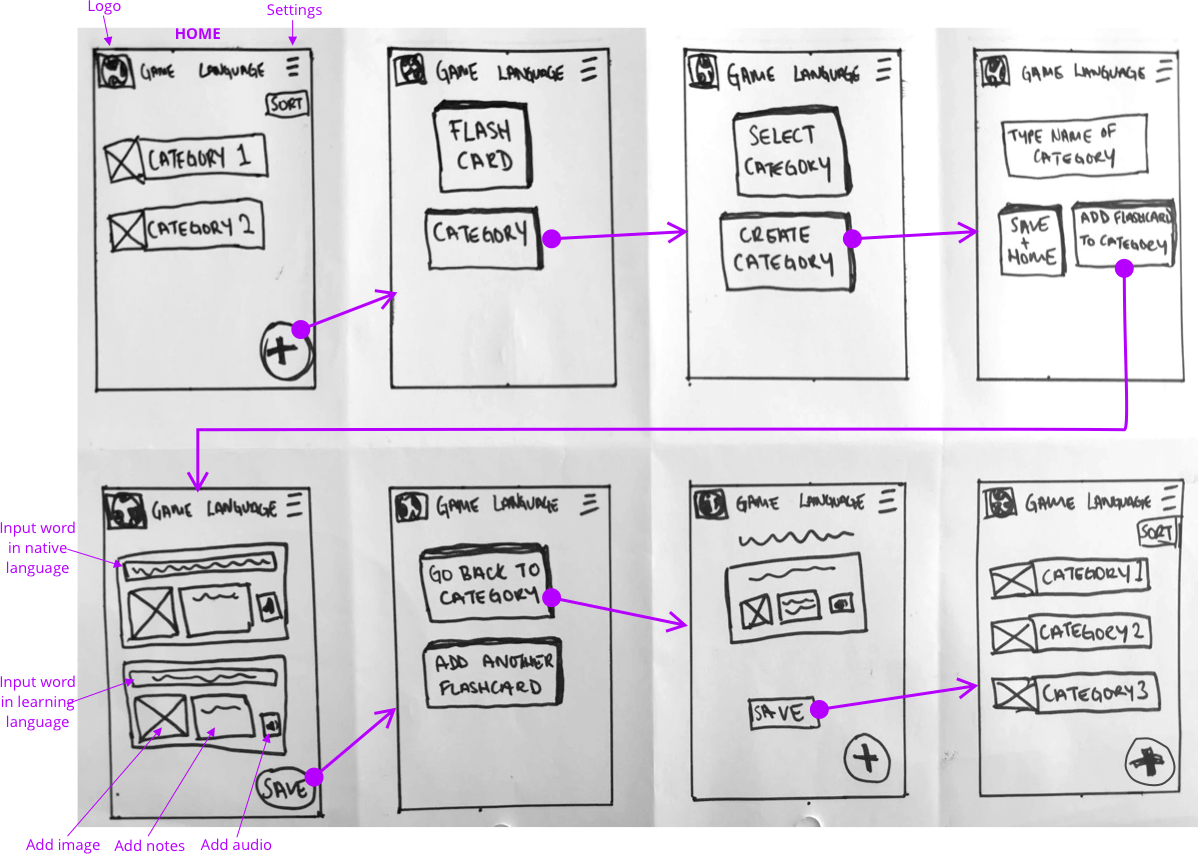 Logo
Settings
HOME
GAME LANGUAGE
SORT
CATEGORY 1
CATEGORY 2
+
GAME LANGUAGE
FLASH
CARD
CATEGORY
GAME LANGUAGE
SELECT
CATEGORY
CREATE
CATEGORY
GAME LANGUAGE
TYPE NAME OF
CATEGORY
SAVE
+
HOME
ADD FLASHCARD
TO CATEGORY
GAME LANGUAGE
Input word
in native
language
Input word
in learning
language
SAVE
Add image
Add notes
Add audio
GAME LANGUAGE
GO BACK TO
CATEGORY
ADD ANOTHER
FLASHCARD
GAME LANGUAGE
SAVE
+
GAME LANGUAGE
SORT
CATEGORY 1
CATEGORY 2
CATEGORY 3
+